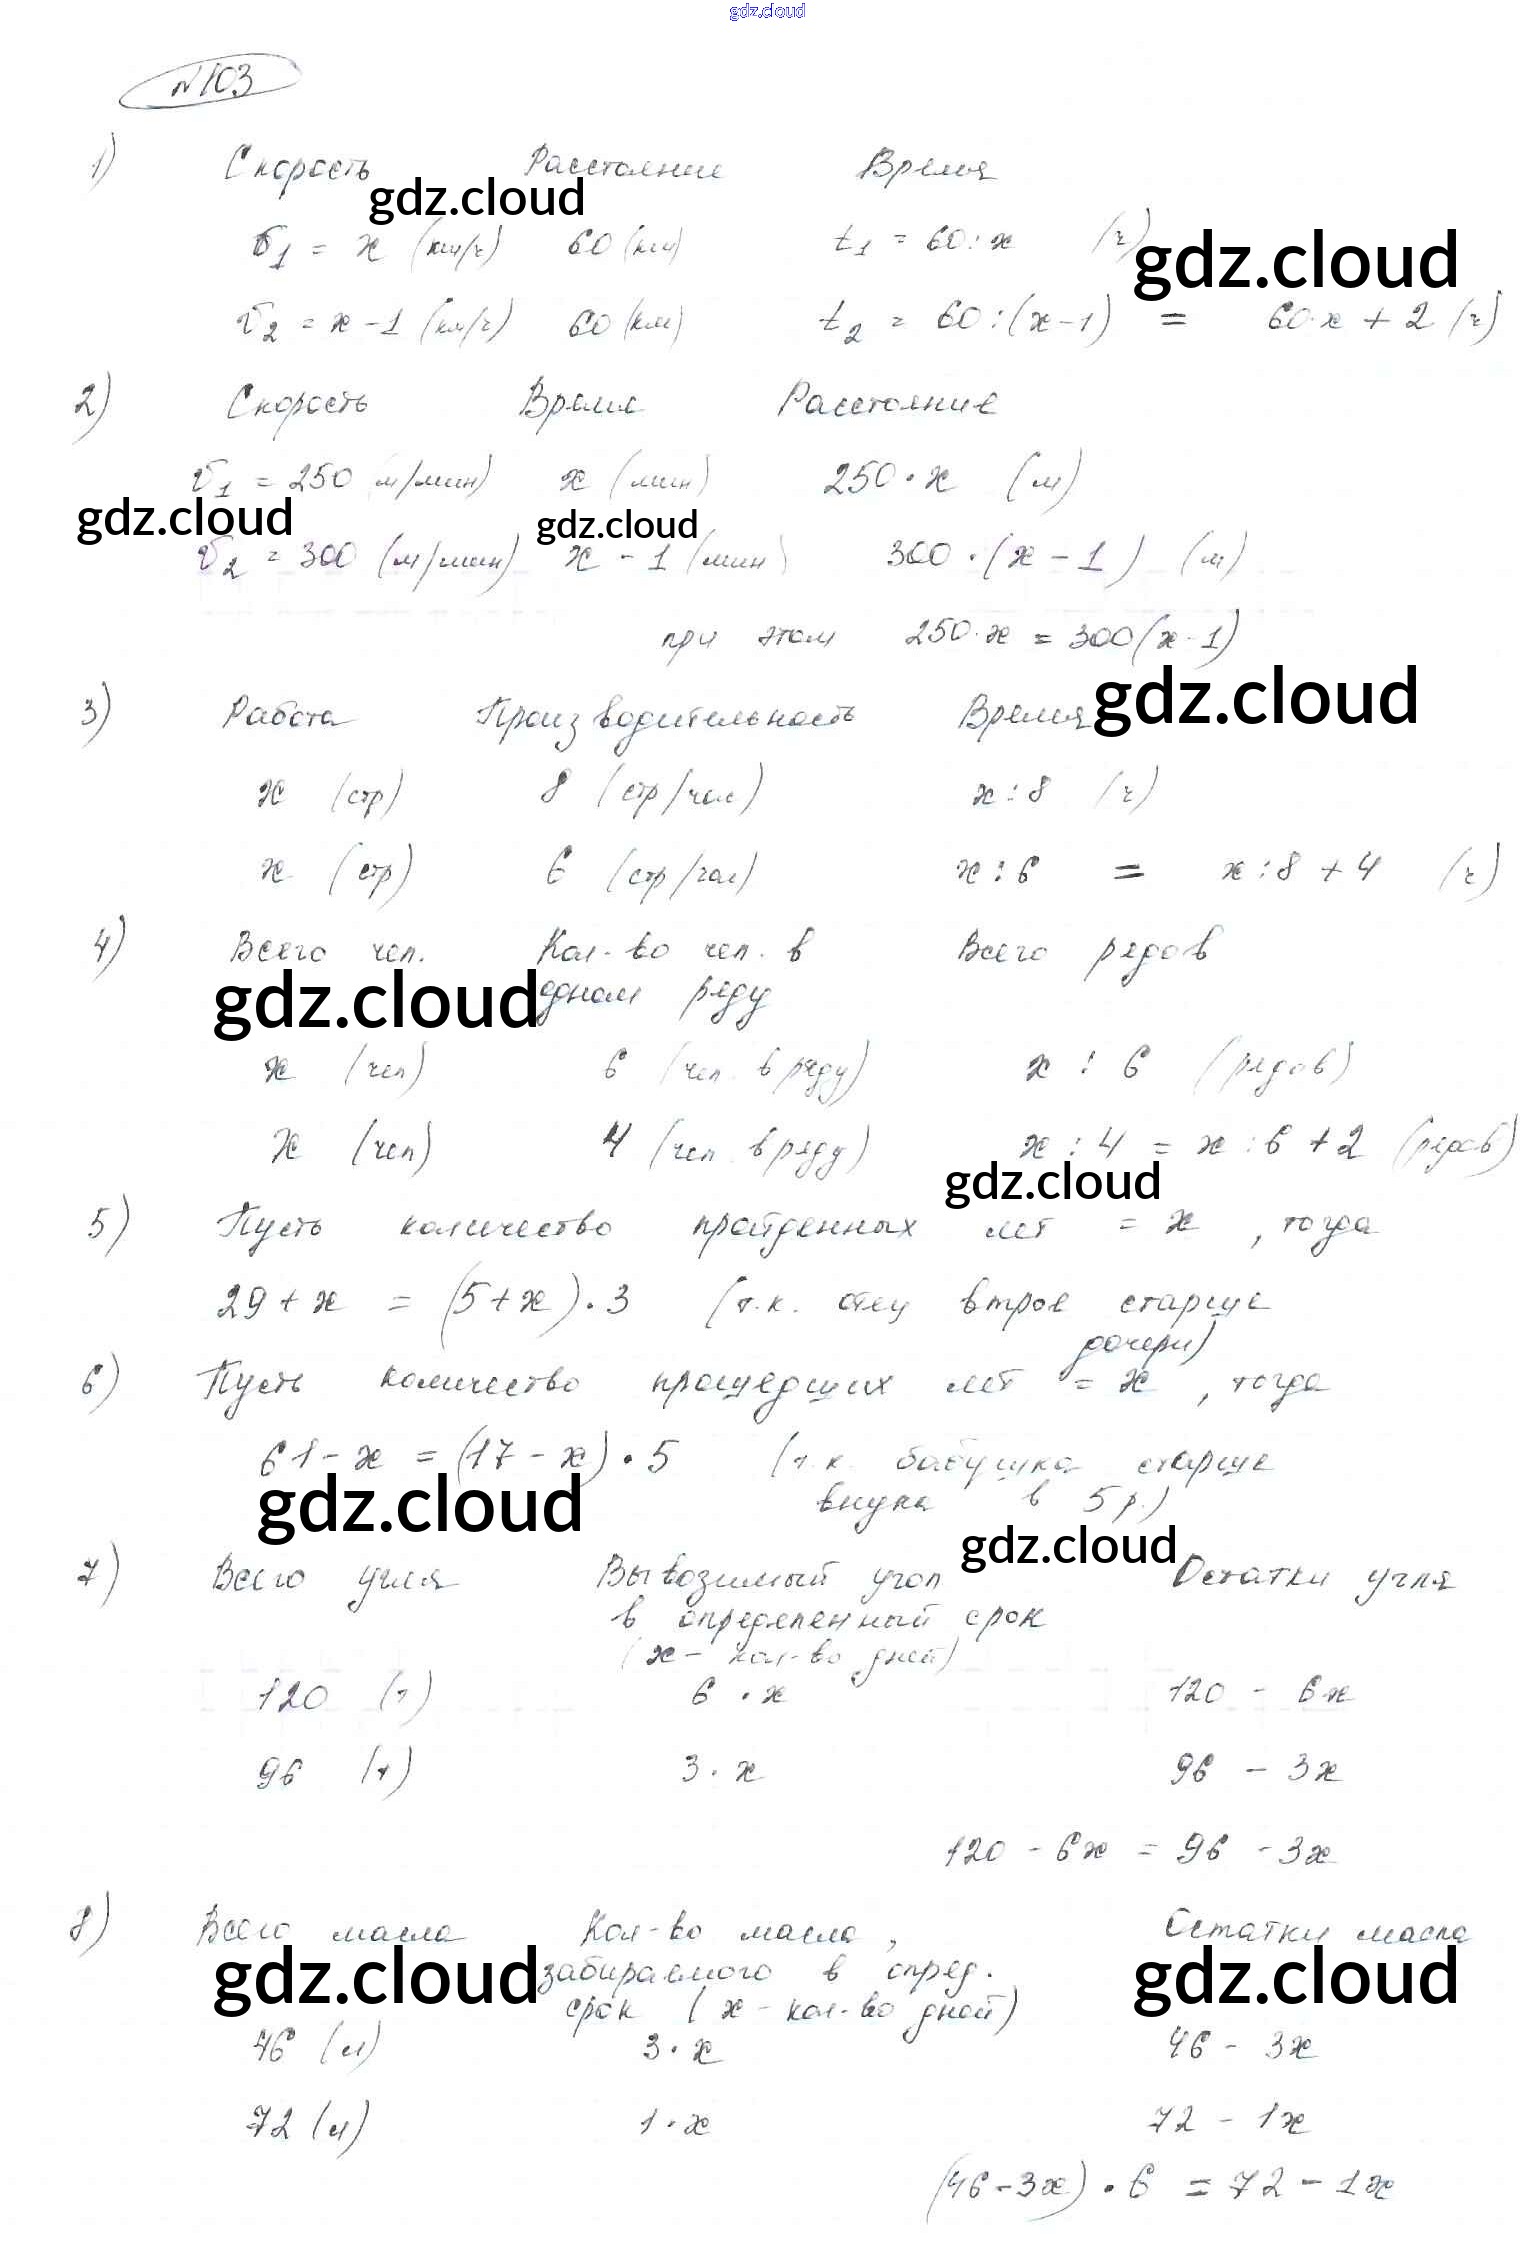 gdz.cloud
№103
1) Скорость Расстояние Время
gdz.cloud
v1 = x (км/ч) 60 (км) t1 = 60:x (ч)
gdz.cloud
v2 = x-1 (км/ч) 60 (км) t2 = 60:(x-1) = 60:x + 2 (ч)
2) Скорость Время Расстояние
v1 = 250 (м/мин) x (мин) 250·x (м)
gdz.cloud gdz.cloud
v2 = 300 (м/мин) x - 1 (мин) 300·(x-1) (м)
при этом 250·x = 300(x-1)
gdz.cloud
3) Работа Производительность Время
x (стр) 8 (стр/час) x:8 (ч)
x (стр) 6 (стр/час) x:6 = x:8 + 4 (ч)
4) Всего чел. Кол-во чел. в Всего рядов
gdz.cloud одном ряду
x (чел) 6 (чел. в ряду) x : 6 (рядов)
x (чел) 4 (чел. в ряду) x : 4 = x : 6 + 2 (рядов)
gdz.cloud
5) Пусть количество пройденных лет = x, тогда
29 + x = (5+x)·3 (т.к. отец втрое старше
дочери)
6) Пусть количество прошедших лет = x, тогда
61 - x = (17 - x)·5 (т.к. бабушка старше
внука в 5 р.)
gdz.cloud
gdz.cloud
7) Всего угля Вывозимый угол Остатки угля
в определенный срок
(x - кол-во дней)
120 (т) 6 · x 120 - 6x
96 (т) 3 · x 96 - 3x
120 - 6x = 96 - 3x
8) Всего масла Кол-во масла, Остатки масла
gdz.cloud забираемого в опред. gdz.cloud
срок (x - кол-во дней)
46 (л) 3·x 46 - 3x
72 (л) 1·x 72 - 1x
(46-3x)·6 = 72 - 1x